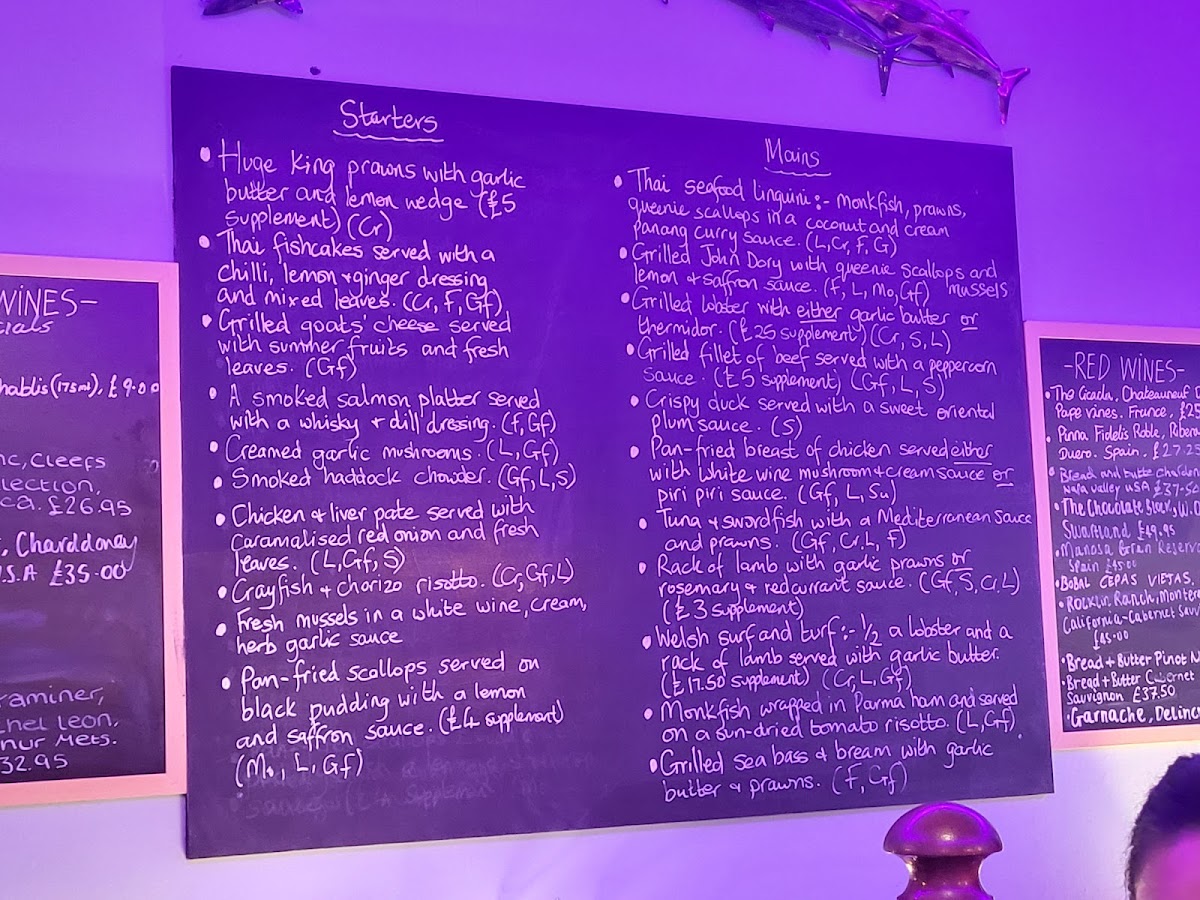 WINES-
cials
hablis (175ml), £9.00
nc, Cleefs
lection,
ca. £26.95
, Charddoney
.S.A £35.00
raminer,
hel Leon,
nur Mets.
32.95
Starters
• Huge King prawns with garlic
butter and lemon wedge (£5
supplement) (Cr)
• Thai fishcakes served with a
chilli, lemon + ginger dressing
and mixed leaves. (Cr, F, Gf)
• Grilled goats' cheese served
with summer fruits and fresh
leaves. (Gf)
• A smoked salmon platter served
with a whisky + dill dressing. (f, Gf)
• Creamed garlic mushrooms. (L, Gf)
• Smoked haddock chowder. (Gf, L, S)
• Chicken + liver pate served with
caramalised red onion and fresh
leaves. (L, Gf, S)
• Crayfish + chorizo risotto. (Cr, Gf, L)
• Fresh mussels in a white wine, cream,
herb garlic sauce
• Pan-fried scallops served on
black pudding with a lemon
and saffron sauce. (£4 supplement)
(Mo, L, Gf)
Mains
• Thai seafood linguini:- monkfish, prawns,
queenie scallops in a coconut and cream
panang curry sauce. (L, Cr, F, G)
• Grilled John Dory with queenie scallops and
lemon + saffron sauce. (f, L, Mo, Gf) mussels
• Grilled lobster with either garlic butter or
thermidor. (£25 supplement) (Cr, S, L)
• Grilled fillet of beef served with a peppercorn
sauce. (£5 supplement) (Gf, L, S)
• Crispy duck served with a sweet oriental
plum sauce. (S)
• Pan-fried breast of chicken served either
with white wine mushroom + cream sauce or
piri piri sauce. (Gf, L, Su)
• Tuna + swordfish with a Mediterranean sauce
and prawns. (Gf, Cr, L, f)
• Rack of lamb with garlic prawns or
rosemary + redcurrant sauce. (Gf, S, Cr, L)
(£3 supplement)
• Welsh surf and turf:- 1/2 a lobster and a
rack of lamb served with garlic butter.
(£17.50 supplement) (Cr, L, Gf)
• Monkfish wrapped in Parma ham and served
on a sun-dried tomato risotto. (L, Gf).
• Grilled sea bass + bream with garlic
butter + prawns. (f, Gf)
-RED WINES-
• The Cicada, Chateauneuf D
Pape vines. France, £25
• Pinna Fidelis Roble, Ribera
Duero. Spain, £27.25
• Bread and butte chardon
Napa valley USA £37.50
• The Chocolate Block, W.O
Swartland £49.95
• Manosa Gran Reserv
Spain £45.00
• BOBAL CEPAS VIEJAS
• Rocklin Ranch, Monter
California-Cabernet Sauv
£45.00
• Bread + Butter Pinot N
• Bread + Butter Cabernet
Sauvignon £37.50
• Garnache, Delinc